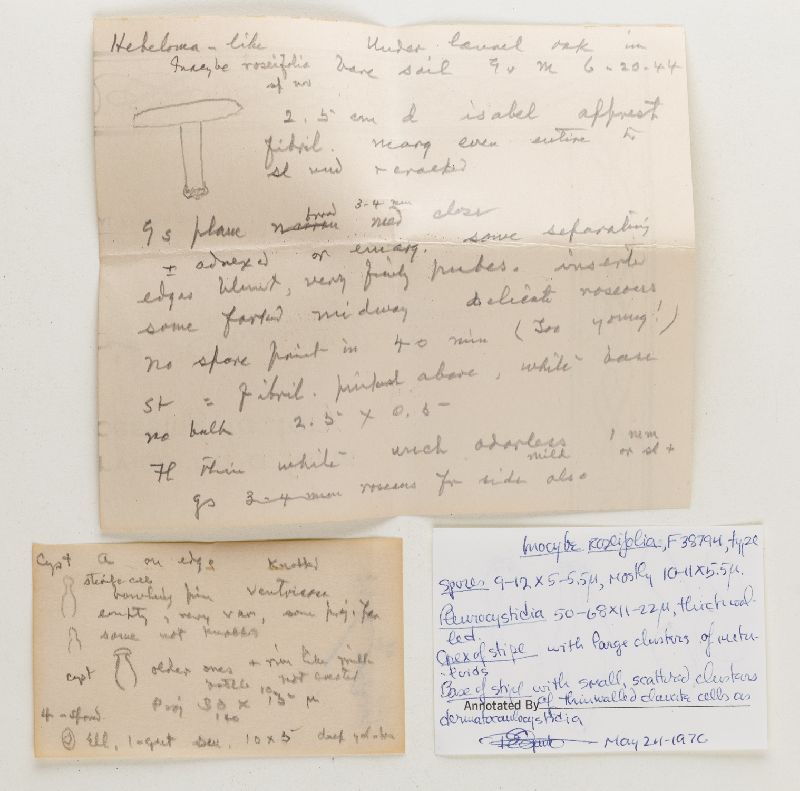 Hebeloma - like Under laurel oak in
Inocybe roseifolia bare soil Gv M 6-20-44
sp nov
2.5 cm d isabel apprest
fibril. marg even entire to
sl und + cracked
3-4 mm
Gs plane narrow broad med close
± adnexed or emarg. some separating
edges blunt, very finely pubes. inserted
some forked midway delicate roseous
no spore print in 40 min (Too young!)
St = fibril. above, white base
no bulb 2.5 x 0.5
Fl thin white odorless 1 mm
mild or sl +
gs 3-4 mm roseous fr side also
Cyst A on edge Knobbed
sterile cells
bowling pin ventricose
empty, very var, some proj. far
some not knobbed
cyst older ones + rim like milk
bottle not crested
Proj 30 x 10-15 µ
4 - spored
Ell, 1 ogut 10x5 deep yel-brn
Inocybe roseifolia, F 38794, type
Spores 9-12 x 5-5.5µ, mostly 10-11 x 5.5µ.
Pleurocystidia 50-68 x 11-22µ, thickwal-
led.
Apex of stipe with large clusters of metu-
loids
Base of stipe with small, scattered clusters
of thinwalled clavate cells as
Annotated By
dermatocaulocystidia
May 24-1970